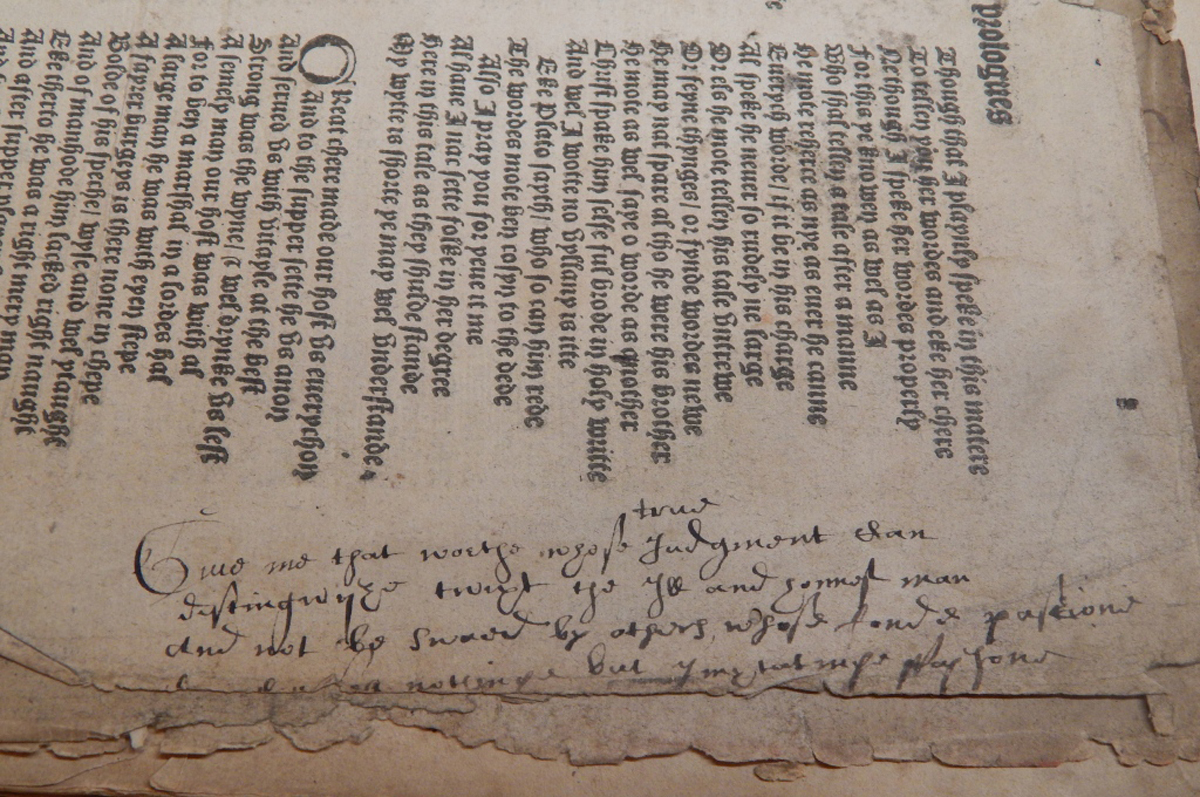 prologues
Though that I playnly speke in this matere
To tellen you her wordes and eke her chere
Ne though I speke her wordes properly
For this ye knowen as wel as I
Who shal tellen a tale after a manne
He mote reherce as nye as euer he canne
Euerych worde / if it be in his charge
Al speke he neuer so rudely ne large
Or els he mote tellen his tale vntrewe
Or feyne thynges / or fynde wordes newe
He may nat spare al tho he were his brother
He mote as wel saye o worde as another
Christ spake him selfe ful brode in holy writte
And wel I wotte no vyllany is itte
Eke Plato sayth / who so can him rede
The wordes mote ben cosyn to the dede
Also I pray you foryeue it me
Al haue I nat sette folke in her degre
Here in this tale as they shulde stande
My wytte is shorte ye may wel vnderstande.
GReat chere made our host vs euerychon
And to the supper sette he vs anon
And serued vs with vitayle at the best
Strong was the wyne / & wel drynke vs lest
A semely man our host was with al
For to ben a marshal in a lordes hal
A large man he was with eyen stepe
A fayrer burgeys is there none in chepe
Bolde of his speche / wyse and wel ytaught
And of manhode him lacked right naught
Eke therto he was a right mery man
And after supper
true
Giue me that worthe whose Judgment Can
distingwyze twixt the Ill and honnest man
and not be swaed by others, whose fond passione
nottinge but Imytatinge fashone